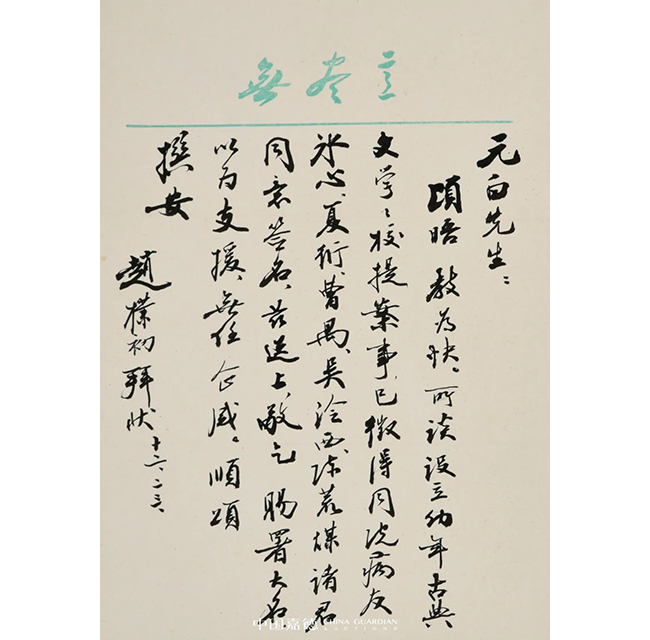 無盡意
元白先生：
頃晤教為快。所談設立幼年古典
文学々校提案事，已徵得同院病友
冰心、夏衍、曹禺、吴冷西、陈荒煤諸君
同意签名，兹送上，敬乞賜署大名，
以为支援，無任企感。順頌
撰安
趙樸初拜状
十六、二、三、
中国嘉德 CHINA GUARDIAN AUCTIONS